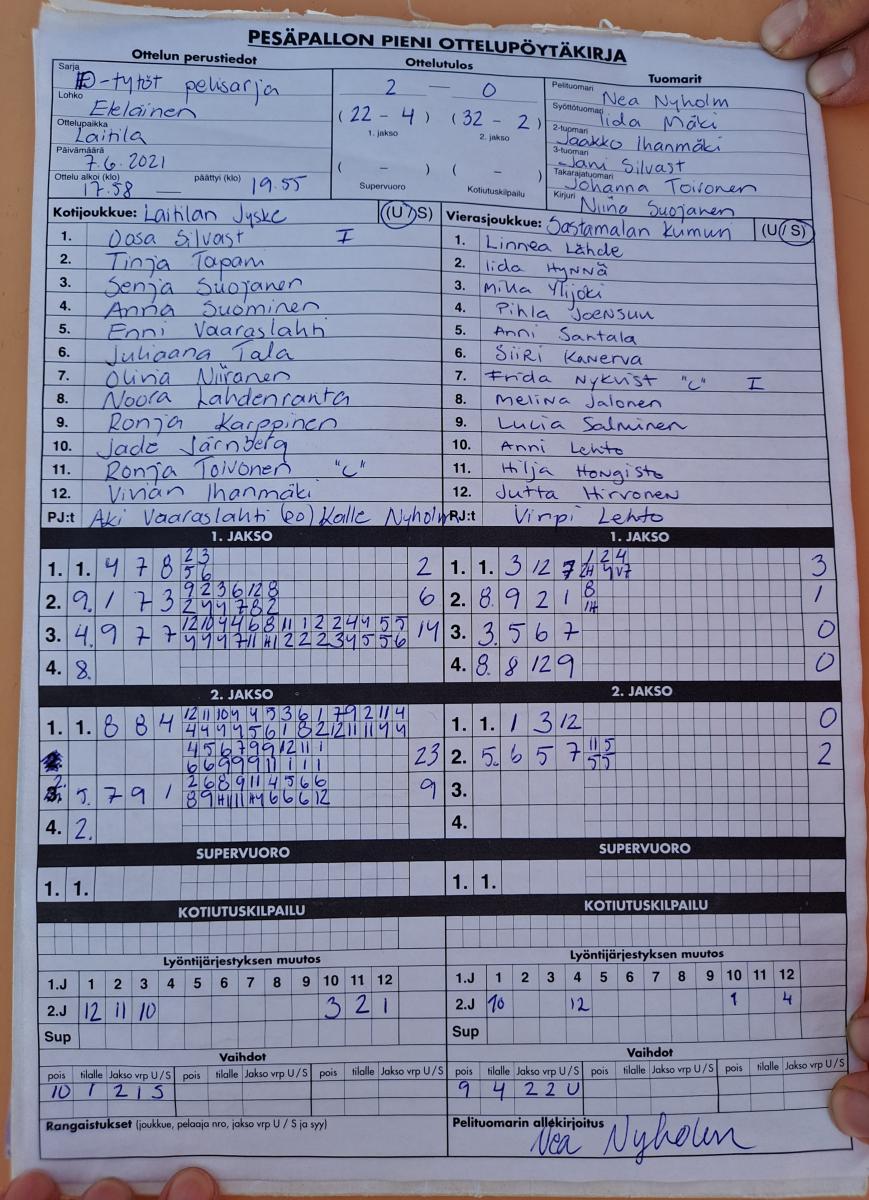 PESÄPALLON PIENI OTTELUPÖYTÄKIRJA
Ottelun perustiedot
Ottelutulos
Tuomarit
Sarja D-tytöt pelisarja
Lohko Eteläinen
Ottelupaikka Laitila
Päivämäärä 7.6.2021
Ottelu alkoi (klo) 17.58 — päättyi (klo) 19.55
2 — 0
(22 - 4) (32 - 2)
1. jakso 2. jakso
( - ) ( - )
Supervuoro Kotiutuskilpailu
Pelituomari Nea Nyholm
Syöttötuomari Iida Mäki
2-tuomari Jaakko Ihanmäki
3-tuomari Jani Silvast
Takarajatuomari Johanna Toivonen
Kirjuri Niina Suojanen
Kotijoukkue: Laitilan Jyske (U/S)
1. Oosa Silvast I
2. Tinja Tapani
3. Senja Suojanen
4. Anna Suominen
5. Enni Vaaraslahti
6. Juliaana Tala
7. Olivia Niiranen
8. Noora Lahdenranta
9. Ronja Karppinen
10. Jade Järnberg
11. Ronja Toivonen "C"
12. Vivian Ihanmäki
PJ:t Aki Vaaraslahti (20) Kalle Nyholm
Vierasjoukkue: Sastamalan Kumun (U/S)
1. Linnea Lähde
2. Iida Hynnä
3. Milla Ylijoki
4. Pihla Joensuu
5. Anni Santala
6. Siiri Kanerva
7. Frida Nykvist "C" I
8. Melina Jalonen
9. Lucia Salminen
10. Anni Lehto
11. Hilja Hongisto
12. Jutta Hirvonen
PJ:t Virpi Lehto
1. JAKSO
1. 1. 4 7 8 2 3 2
5 6
2. 9. 1 7 3 9 2 3 6 12 8 6
2 4 4 7 8 2
3. 4. 9 7 7 12 10 4 4 6 8 11 1 2 2 4 4 5 5 14
4 4 4 7 11 H1 2 2 2 3 4 5 5 6
4. 8.
1. JAKSO
1. 1. 3 12 7 1 2 4 3
2H 4 V7
2. 8. 9 2 1 8 1
1H
3. 3. 5 6 7 0
4. 8. 8 12 9 0
2. JAKSO
1. 1. 8 8 4 12 11 10 4 4 5 3 6 1 7 9 2 11 4
4 4 4 4 5 6 1 8 2 12 11 11 4 4
4 5 6 7 9 9 12 11 1 23
6 6 9 9 9 11 1 1 1
2. 5. 7 9 1 2 6 8 9 11 4 5 6 6 9
8 9 H1 11 H4 6 6 6 12
4. 2.
2. JAKSO
1. 1. 1 3 12 0
2. 5. 6 5 7 11 5 2
5 5
3.
4.
SUPERVUORO
1. 1.
SUPERVUORO
1. 1.
KOTIUTUSKILPAILU
KOTIUTUSKILPAILU
Lyöntijärjestyksen muutos
1.J 1 2 3 4 5 6 7 8 9 10 11 12
2.J 12 11 10 3 2 1
Sup
Lyöntijärjestyksen muutos
1.J 1 2 3 4 5 6 7 8 9 10 11 12
2.J 10 12 1 4
Sup
Vaihdot
pois tilalle Jakso vrp U/S pois tilalle Jakso vrp U/S pois tilalle Jakso vrp U/S
10 1 2 1 S
Vaihdot
pois tilalle Jakso vrp U/S pois tilalle Jakso vrp U/S pois tilalle Jakso vrp U/S
9 4 2 2 U
Rangaistukset (joukkue, pelaaja nro, jakso vrp U / S ja syy)
Pelituomarin allekirjoitus
Nea Nyholm